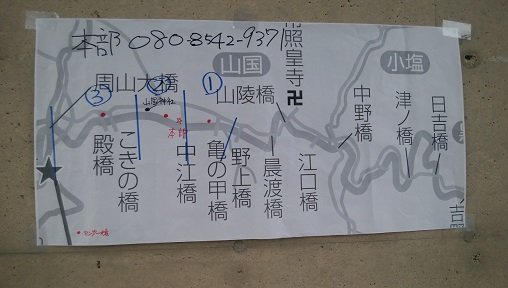 本部 080-8542-9371
常照皇寺
山国
小塩
周山大橋
③
②
①
山国神社
本部
殿橋
こきの橋
中江橋
亀の甲橋
山陵橋
野上橋
卍
晨渡橋
江口橋
中野橋
津ノ橋
日吉橋